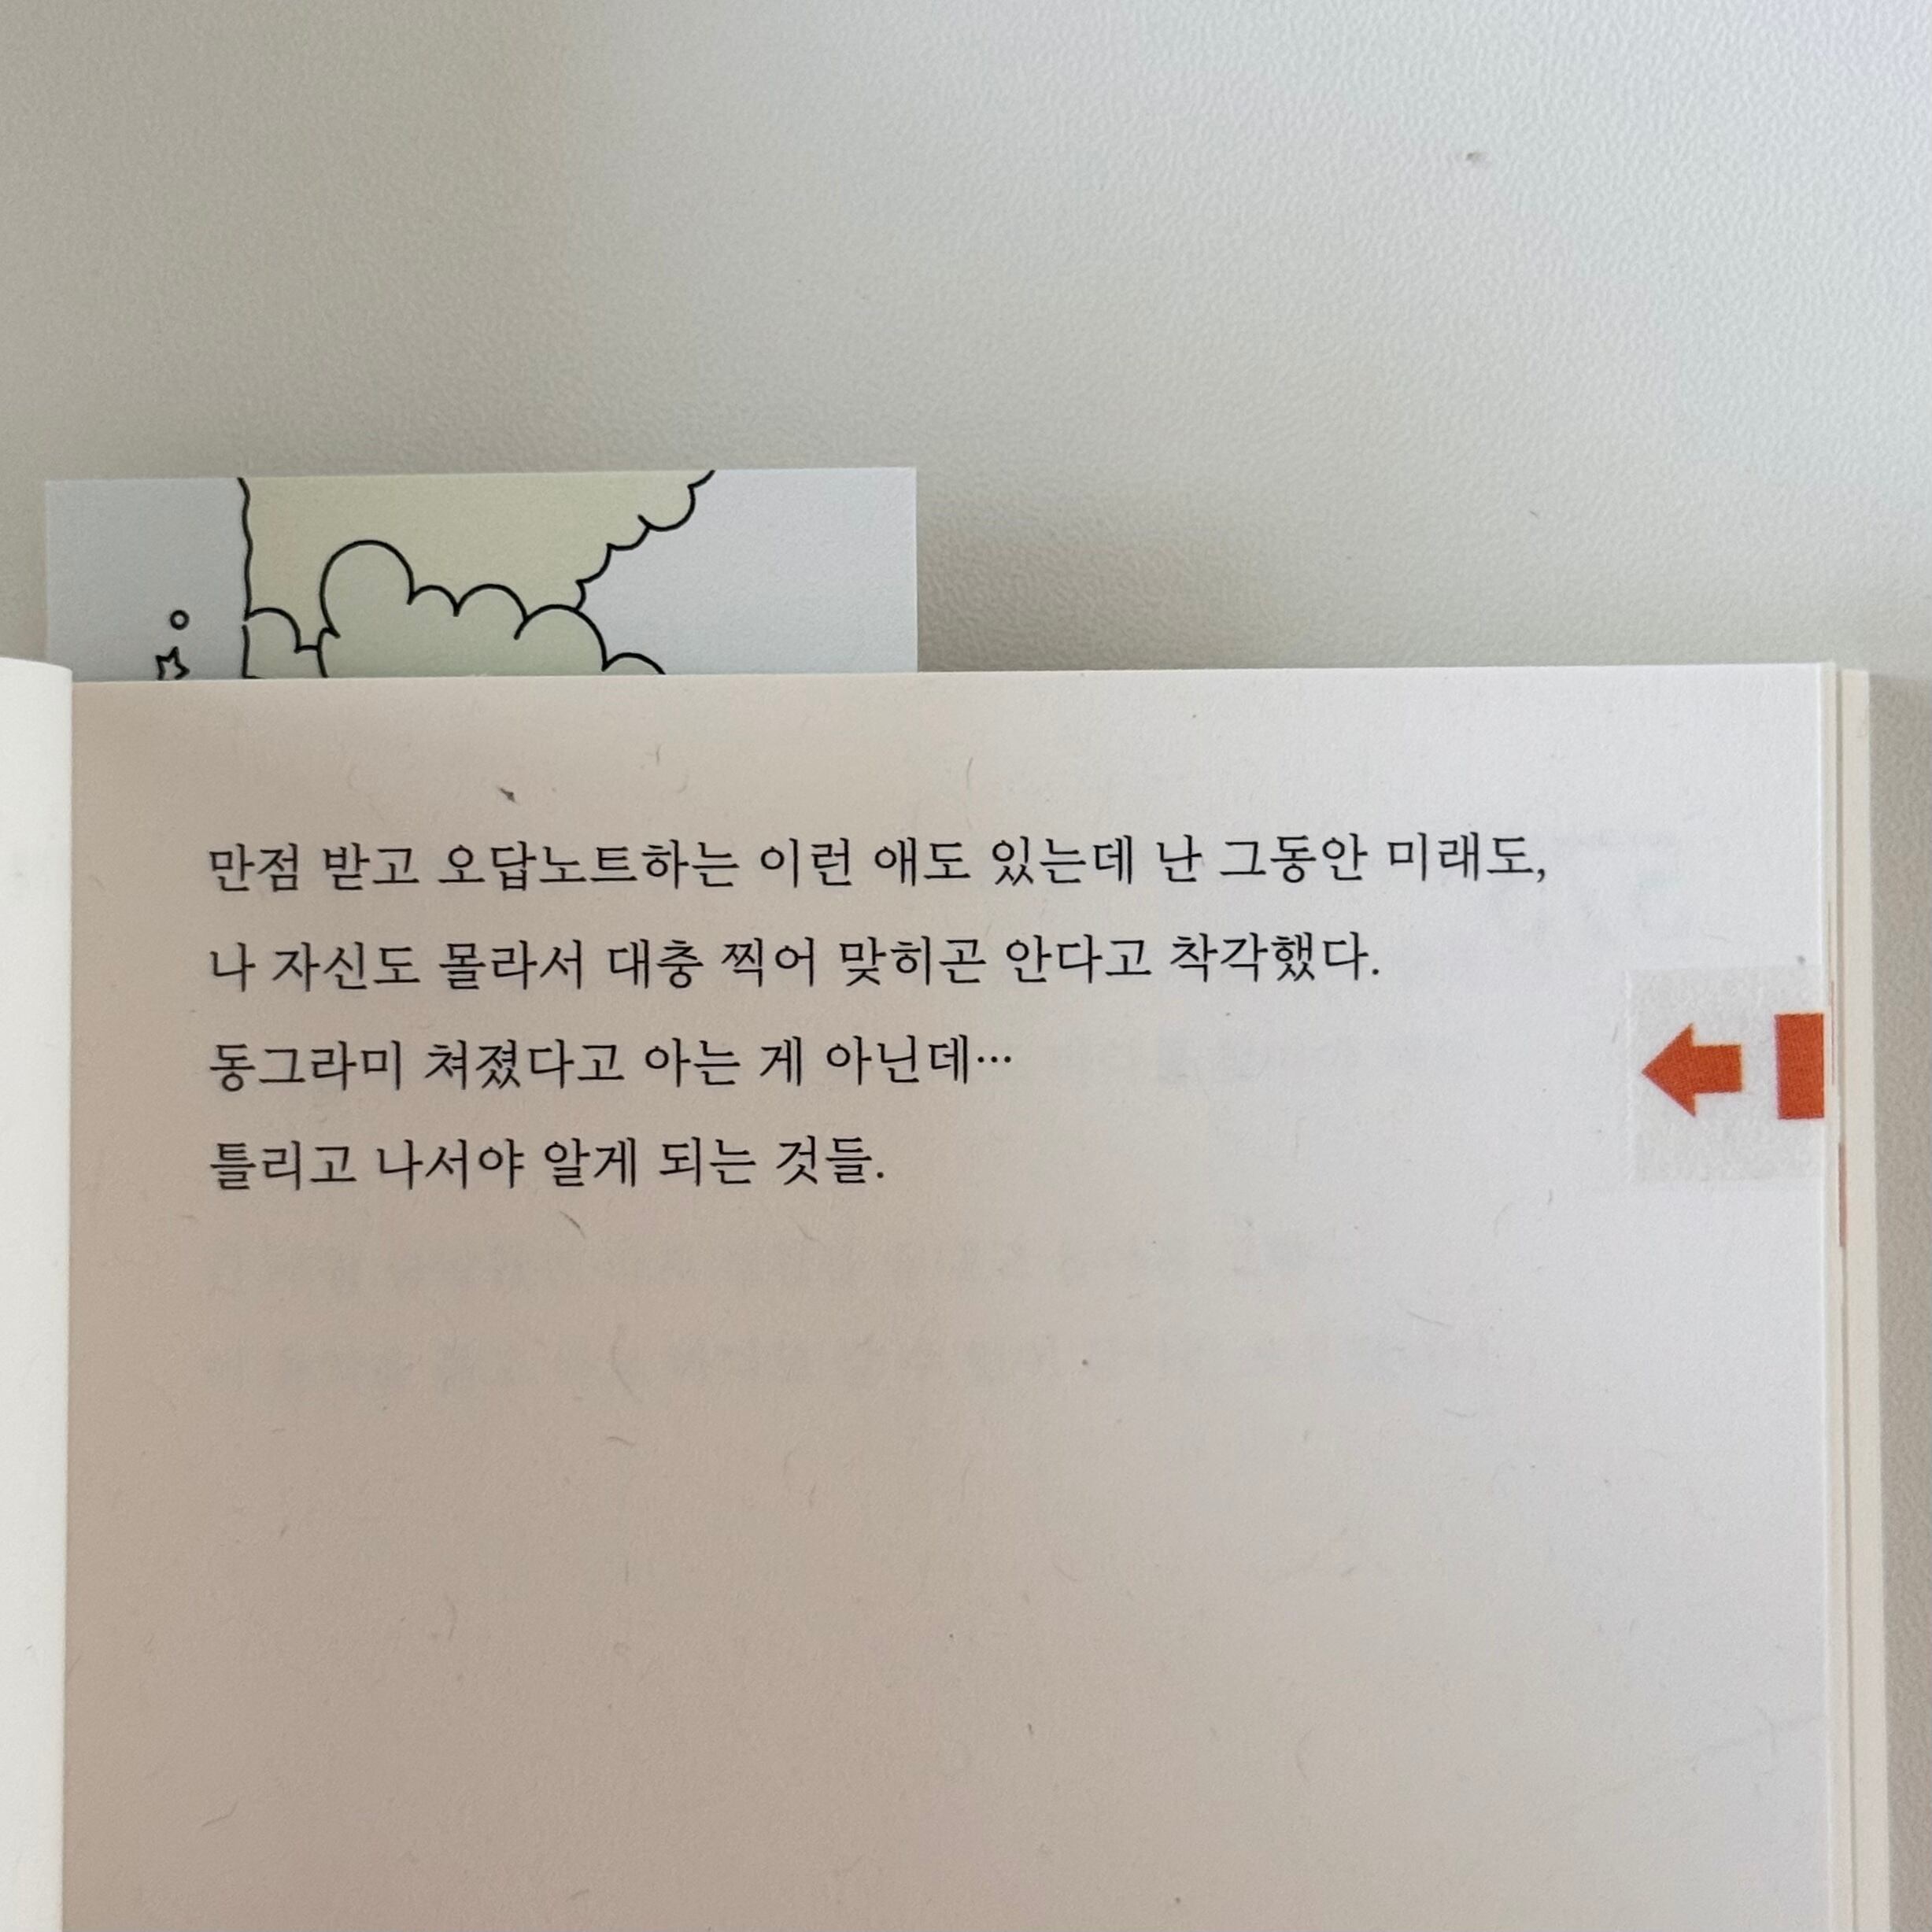 만점 받고 오답노트하는 이런 애도 있는데 난 그동안 미래도,
나 자신도 몰라서 대충 찍어 맞히곤 안다고 착각했다.
동그라미 쳐졌다고 아는 게 아닌데…
틀리고 나서야 알게 되는 것들.